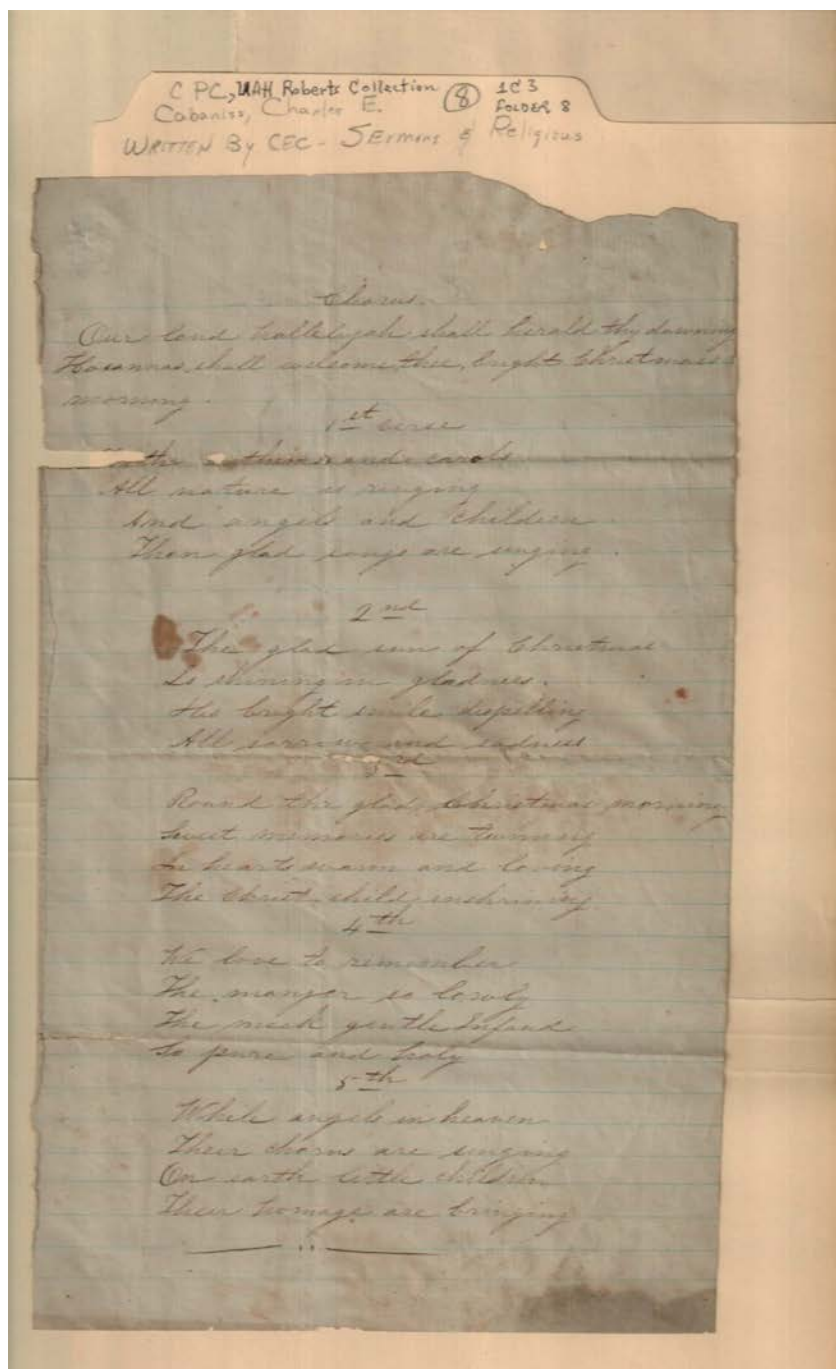 C PC, UAH Roberts Collection (8) 1C3
Cabaniss, Charles E. FOLDER 8
WRITTEN By CEC - SErmons & Religious
Chorus.
Our loud hallelujah shall herald thy dawning
Hosannas, shall welcome, thee, bright Christmas
morning.
1st verse
the anthems and carols
All nature is ringing
And angels and children
glad songs are singing.
2nd
The glad sun of Christmas
Is shining in gladness.
His bright smile dispelling
All sorrow and sadness
3rd
Round the glad Christmas morning
Sweet memories are twining
In hearts warm and loving
The Christ child enshrining
4th
We love to remember
The manger so lowly
The meek gentle Infant
So pure and holy
5th
While angels in heaven
Their chorus are singing
On earth little children
Their homage are bringing